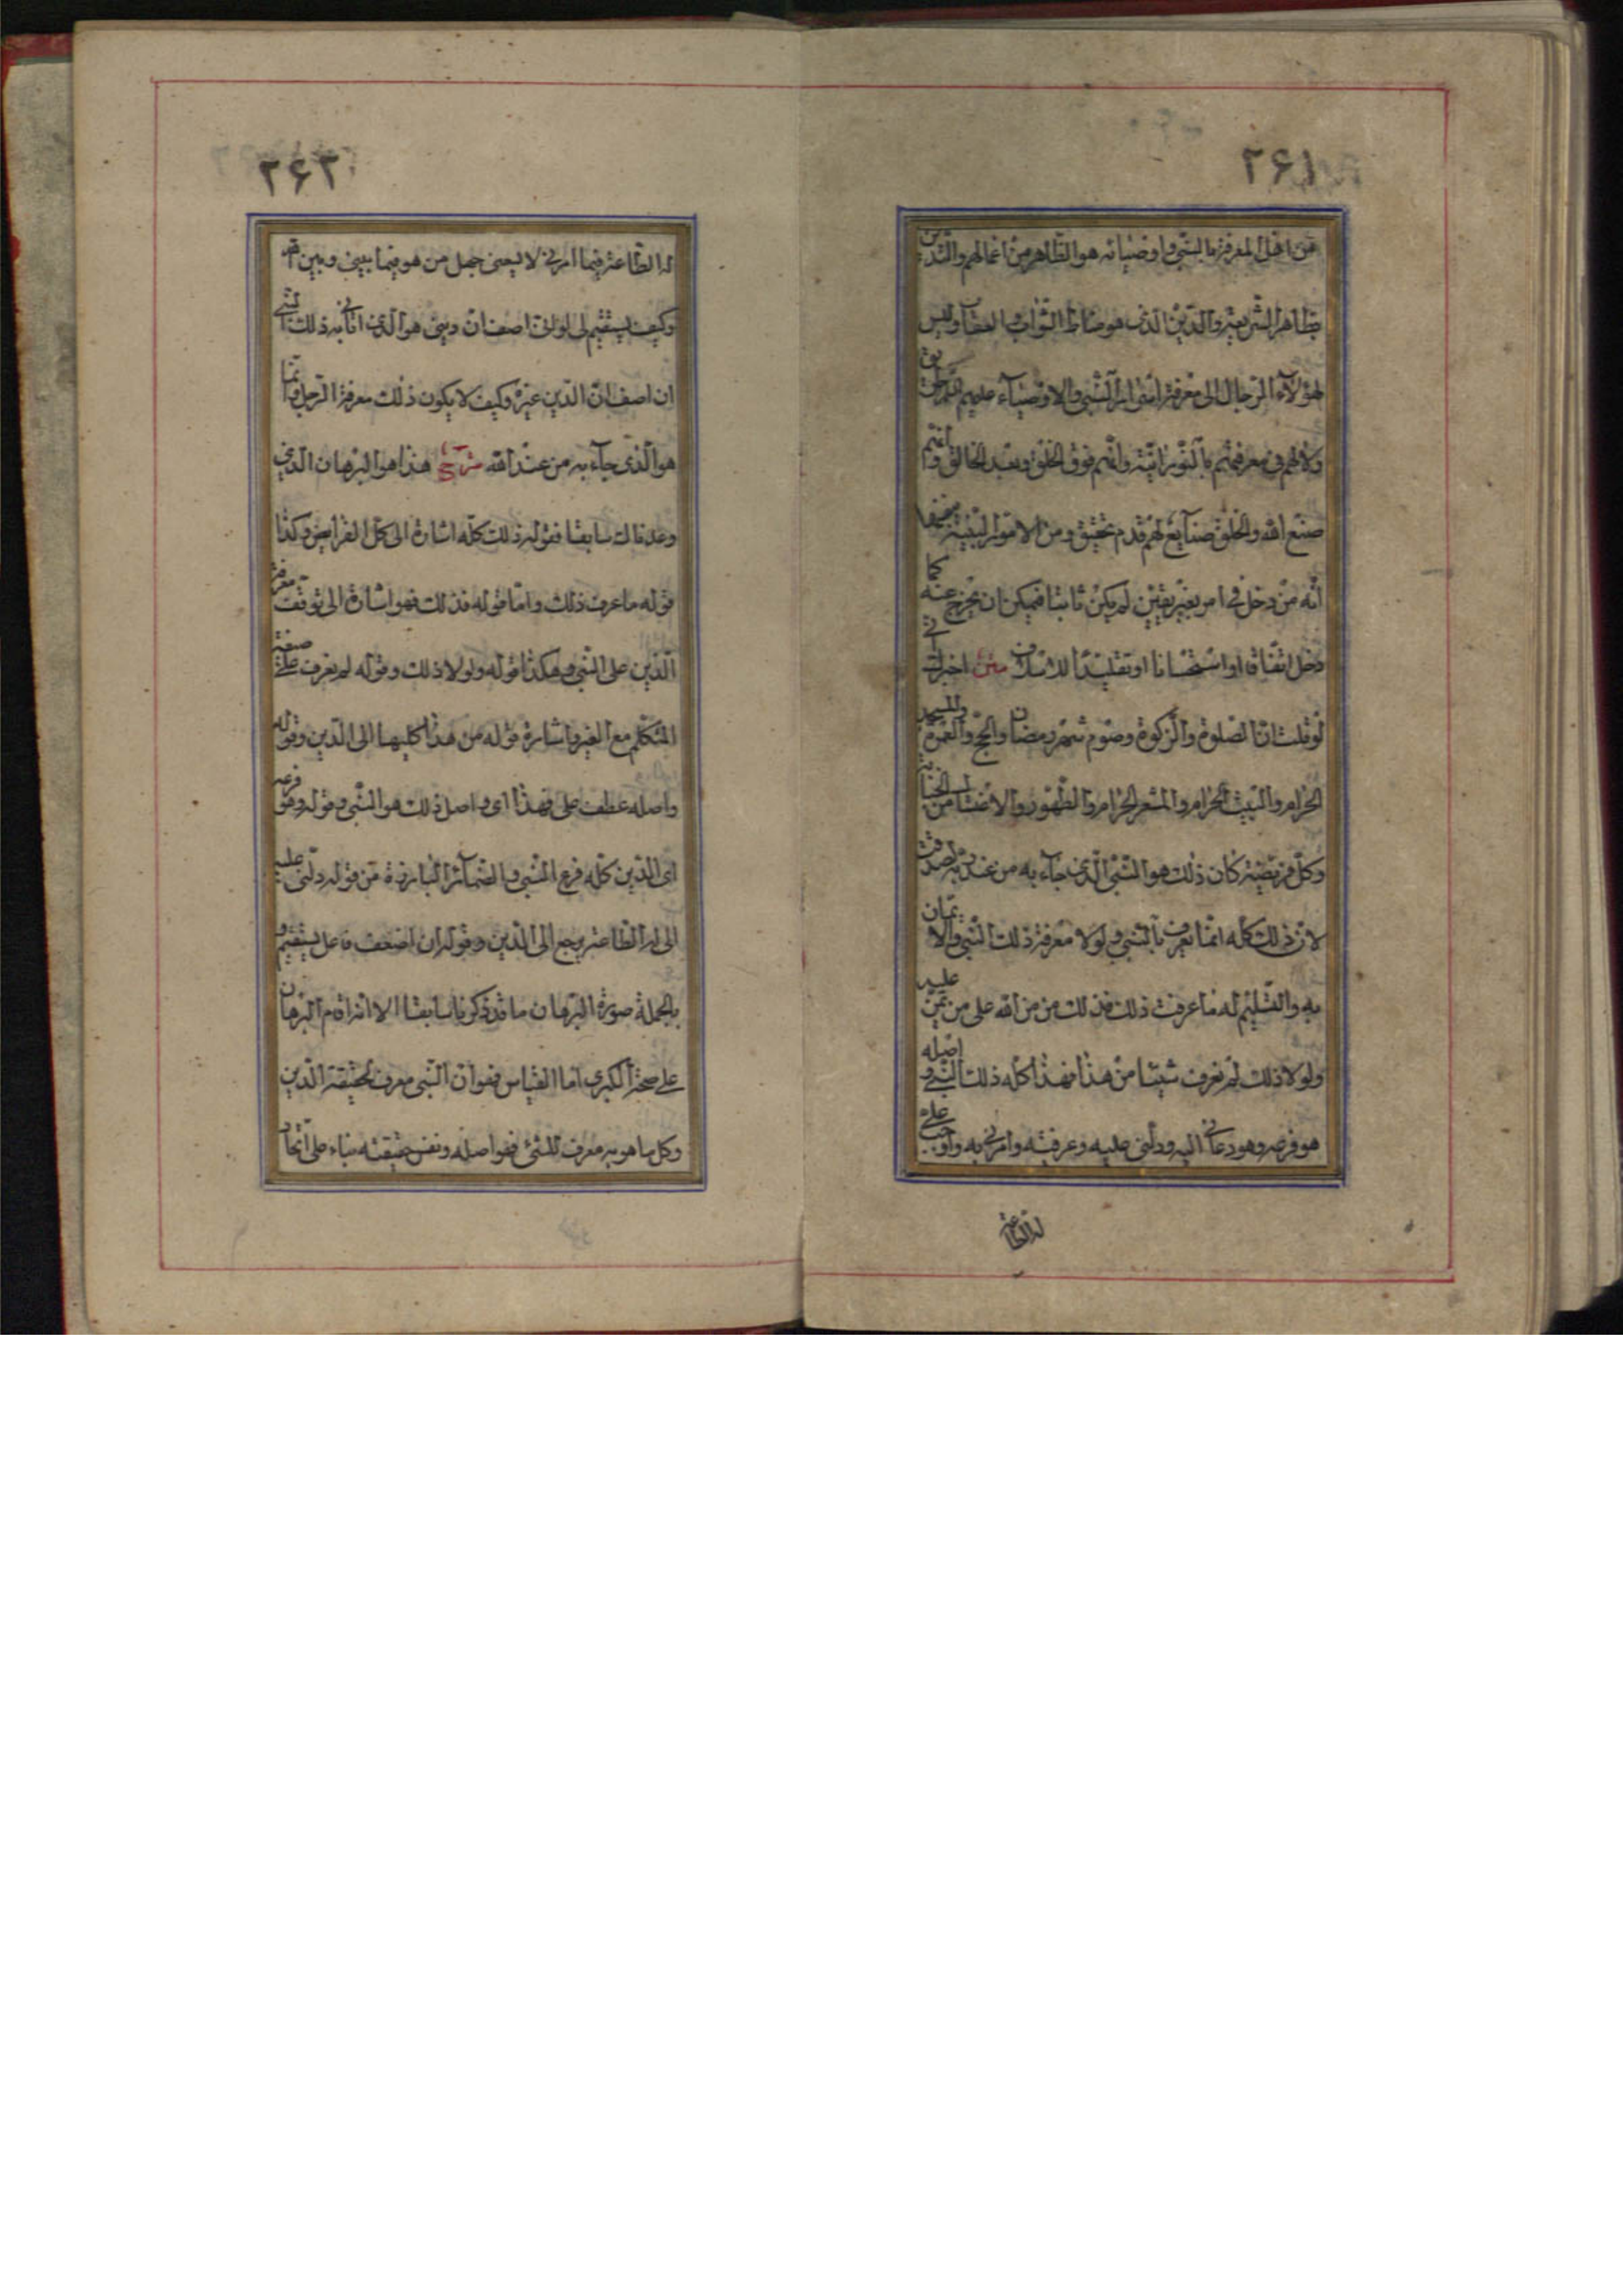 ۲۶۱
من اهل المعرفة بالنبی و اوصیائه هو الظاهر من اعمالهم والتدین
بظاهر الشریعة والدین الذی هو مناط الثواب و العقاب ولیس
لهؤلاء الرجال الی معرفة اسرار النبی والاوصیاء علیهم طریق
ولا لهم فی معرفتهم بالنورانیة وانهم فوق الخلق وبعد الخالق وانهم
صنع الله والخلق صنایع لهم قدم تحقیق ومن الامور البینة
انه من دخل فی امر بغیر یقین لم یکن ثابتا فیمکن ان یخرج عنه کما
دخل اتفاقا او استحسانا او تقلیدا للاسلاف متن اخبرک انی
لو قلت ان الصلوة والزکوة وصوم شهر رمضان والحج والعمرة والمسجد
الحرام والبیت الحرام والمشعر الحرام والطهور والاغتسال من الجنابة
وکل فریضة کان ذلک هو النبی الذی جاء به من عند ربه لصدقت
لان ذلک کله انما یعرف بالنبی ولولا معرفة ذلک النبی والایمان
به والتسلیم له ما عرفت ذلک فذلک من من الله علی من یمن علیه
ولولا ذلک لم نعرف شیئا من هذا فهذا کله ذلک النبی و اصله
هو فرعه وهو دعانی الیه ودلنی علیه وعرفنیه وامرنی به واوجب علی
له الطاعة
۲۶۲
له الطاعة فیما امرنی لا یسعنی جهل من هو فیما بینی وبین الله
وکیف یستقیم لی لولا انی اصف ان دینی هو الذی اتانی به ذلک النبی
ان اصف ان الدین غیره وکیف لا یکون ذلک معرفة الرجل وانما
هو الذی جاء به من عند الله شرح هذا هو البرهان الذی
وعدناک سابقا فقوله ذلک کله اشارة الی کل الفرایض وکذا
قوله ما عرف ذلک واما قوله فذلک فهو اشارة الی توقف معرفة
الدین علی النبی وهکذا قوله ولولا ذلک وقوله لم نعرف علی صیغة
المتکلم مع الغیر واشارة قوله من هذا کلیهما الی الدین وقوله
واصله عطف علی فهذا ای واصل ذلک هو النبی وقوله وهو فرعه
ای الدین کله فرع النبی والضمائر البارزة من قوله دلنی علیه
الی له الطاعة یرجع الی الدین وقوله ان اصف فاعل یستقیم و
بالجملة صورة البرهان ما قد ذکرنا سابقا الا انه اقام البرهان
علی صحة الکبری اما القیاس فهو ان النبی معرف لحقیقة الدین
وکل ما هو به معرف للشئ فهو اصله ونفس حقیقته بناء علی اتحاد